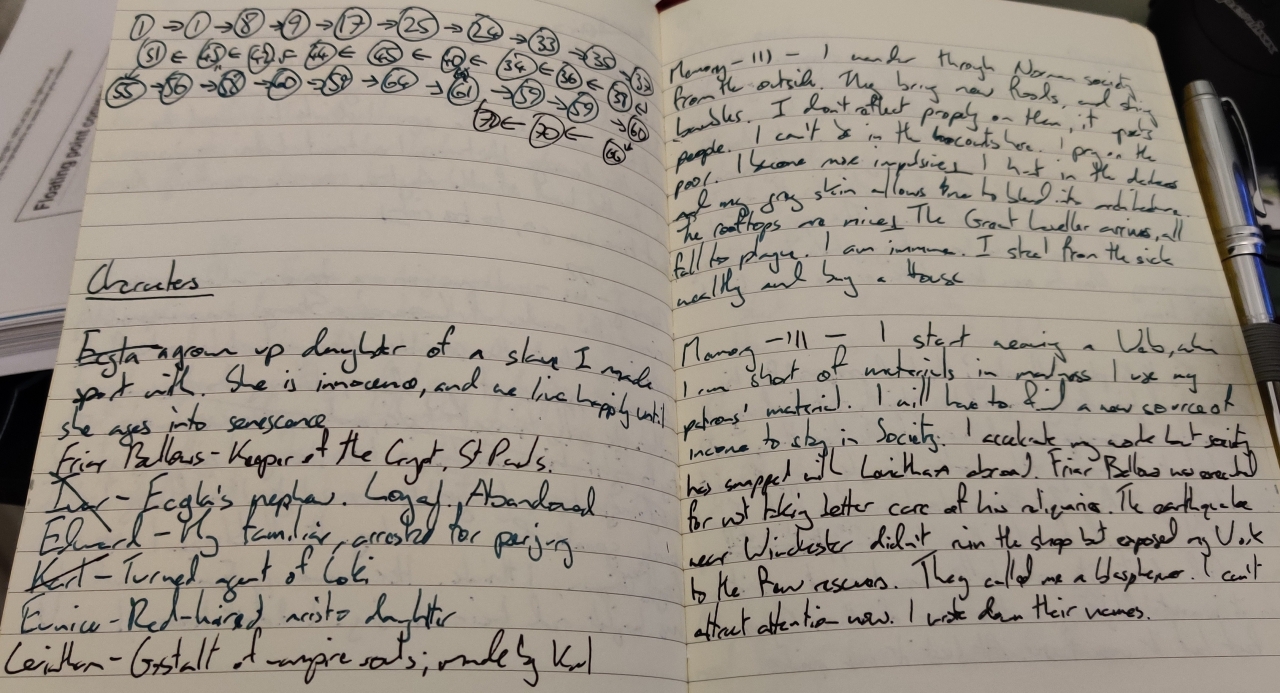 1 → 1 → 8 → 9 → 17 → 25 → 24 → 33 → 35 → 37
51 ← 45 ← ← 44 ← 45 ← 40 ← 34 ← 36 ← 39 ←
55 → 56 → 58 → 60 → 59 → 64 → 61 → 59 → 59 → 60
70 ← 70 ← 66
Characters
Ecgla a grown up daughter of a slave I made
sport with. She is innocence, and we live happily until
she ages into senescence
Friar Bellows - Keeper of the Crypt, St Pauls.
Ivar - Ecgla's nephew. Loyal, Abandoned
Edward - My familiar, arrested for perjury
Karl - Turned agent of Loki
Eunice - Red-haired aristo daughter
Leviathan - Gestalt of vampire souls; made by Karl
Memory - III - I wander through Norman society
from the outside. They bring new foods, and shiny
baubles. I don't reflect properly on them, it
people. I can't be in the here. I prey on the
poor. I become more impulsive. I hunt in the darkness
and my grey skin allows me to blend into architecture.
The rooftops are mine. The Great Leveller arrives, all
fall to plague. I am immune. I steal from the sick
wealthy and buy a House
Memory - III - I start weaving a Web, when
I run short of materials in madness I use my
patrons' material. I will have to find a new source of
income to stay in Society. I accelerate my work but society
has with Leviathan abroad. Friar Bellows was executed
for not taking better care of his reliquaries. The earthquake
near Winchester didn't ruin the shop but exposed my Work
to the rescuers. They called me a blasphemer. I can't
attract attention now. I wrote down their names.
Floating point